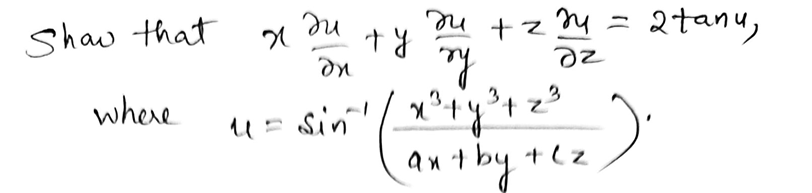 Show that x ∂u/∂x + y ∂u/∂y + z ∂u/∂z = 2 tan u,
where u = sin⁻¹ ( (x³ + y³ + z³) / (ax + by + cz) ).